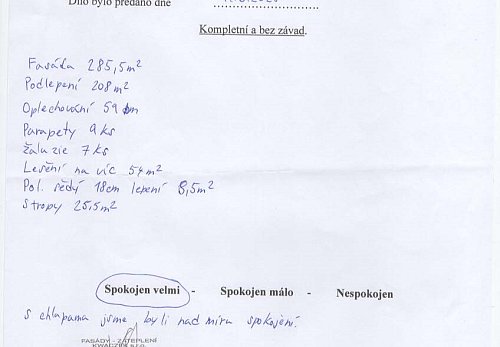 Dílo bylo předáno dne
Kompletní a bez závad.
Fasáda 285,5m²
Podlepení 208m²
Oplechování 59 m
Parapety 9 ks
Žaluzie 7 ks
Lešení na víc 54 m²
Pol. šedý 18cm lepení 8,5m²
Stropy 25,5m²
Spokojen velmi - Spokojen málo - Nespokojen
s chlapama jsme byli nad míru spokojení.
FASÁDY - ZATEPLENÍ